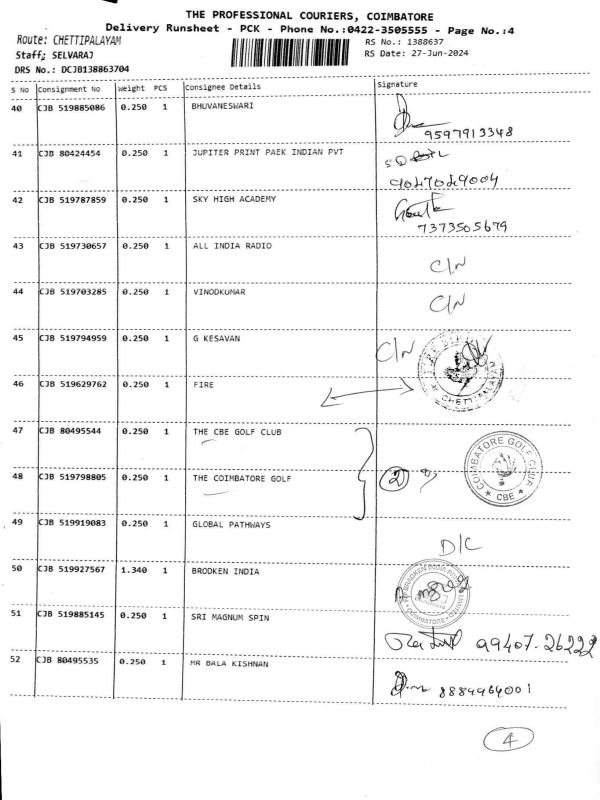 THE PROFESSIONAL COURIERS, COIMBATORE
Delivery Runsheet - PCK - Phone No.:0422-3505555 - Page No.:4
Route: CHETTIPALAYAM
RS No.: 1388637
Staff: SELVARAJ
RS Date: 27-Jun-2024
DRS No.: DCJB138863704
S No Consignment No Weight PCS Consignee Details Signature
40 CJB 519885086 0.250 1 BHUVANESWARI
9597913348
41 CJB 80424454 0.250 1 JUPITER PRINT PAEK INDIAN PVT
9047049004
42 CJB 519787859 0.250 1 SKY HIGH ACADEMY
7373505679
43 CJB 519730657 0.250 1 ALL INDIA RADIO
C/N
44 CJB 519703285 0.250 1 VINODKUMAR
C/N
45 CJB 519794959 0.250 1 G KESAVAN
C/N
CHETTIPALAYAM
46 CJB 519629762 0.250 1 FIRE
47 CJB 80495544 0.250 1 THE CBE GOLF CLUB
COIMBATORE GOLF CLUB
CBE
48 CJB 519798805 0.250 1 THE COIMBATORE GOLF
2
49 CJB 519919083 0.250 1 GLOBAL PATHWAYS
D/C
50 CJB 519927567 1.340 1 BRODKEN INDIA
COIMBATORE
51 CJB 519885145 0.250 1 SRI MAGNUM SPIN
99407-26222
52 CJB 80495535 0.250 1 MR BALA KISHNAN
8884964001
4